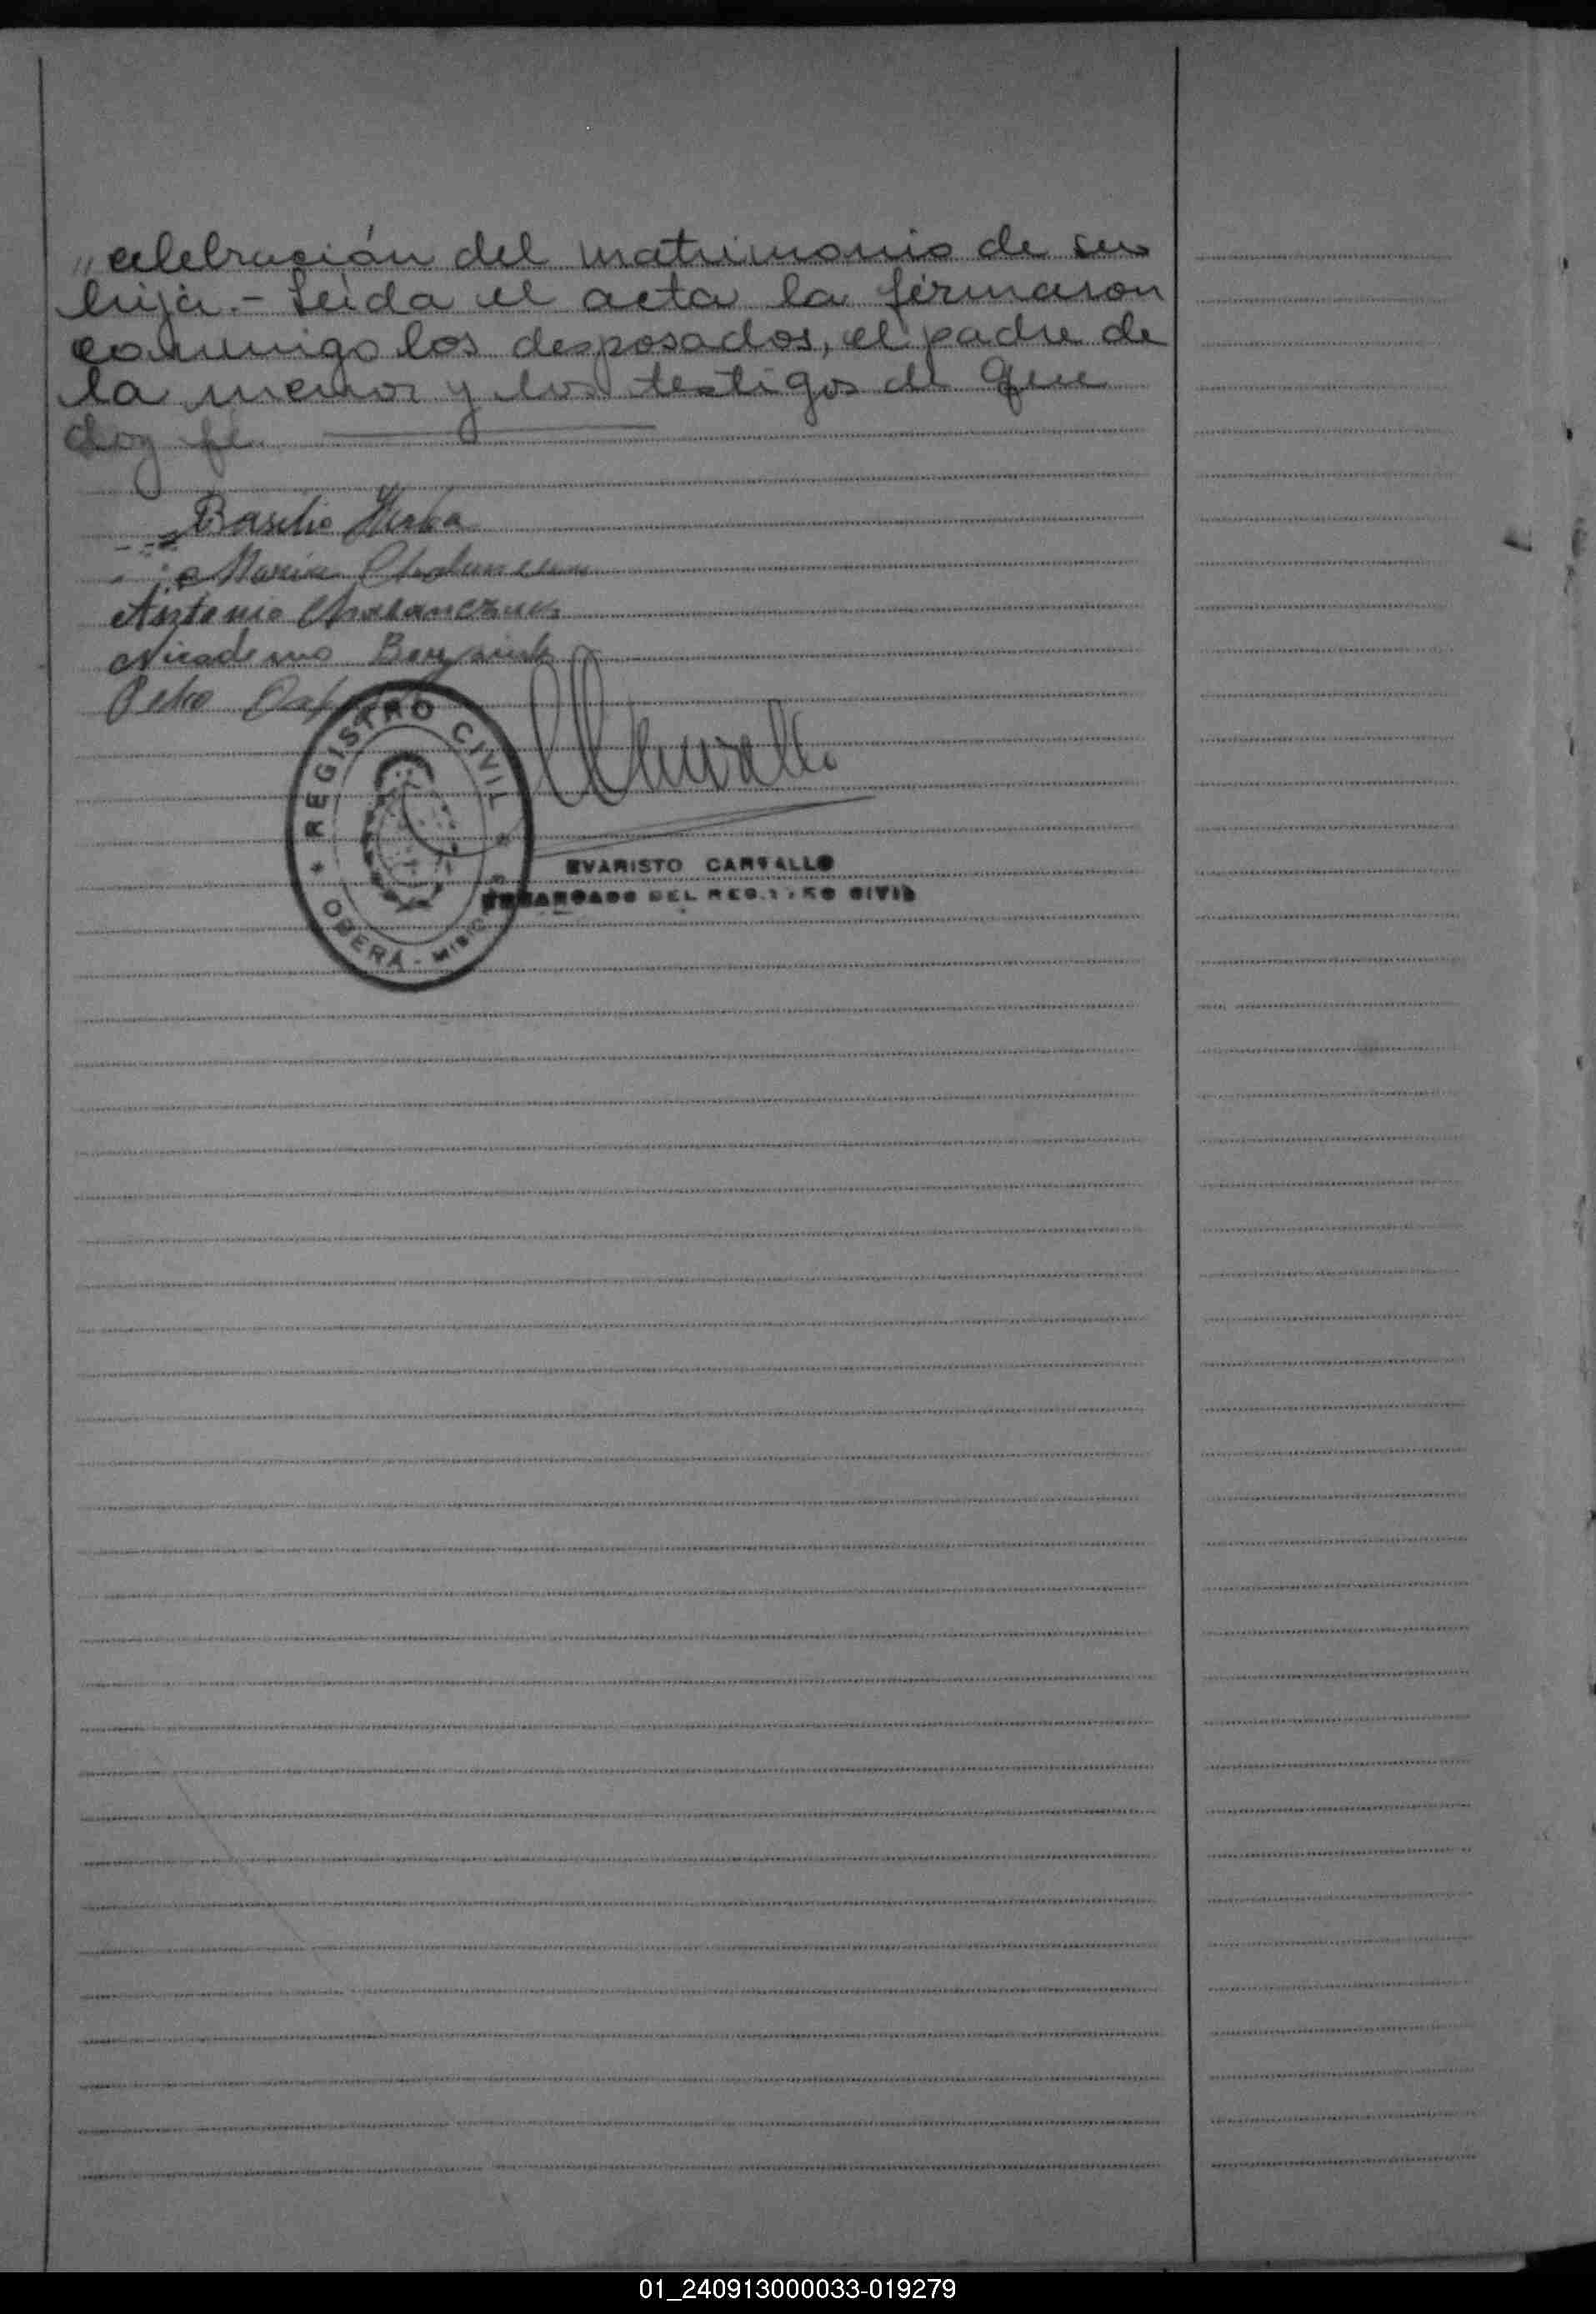 „celebración del matrimonio de su
hija.- Leída el acta la firmaron
conmigo los desposados, el padre de
la menor y los testigos de que
doy fe.
Basilio
María
Antonio Chabanczuk
Nicodemo
Pedro
REGISTRO CIVIL
OBERÁ - MISIONES
EVARISTO CARVALLO
ENCARGADO DEL REGISTRO CIVIL
01_240913000033-019279